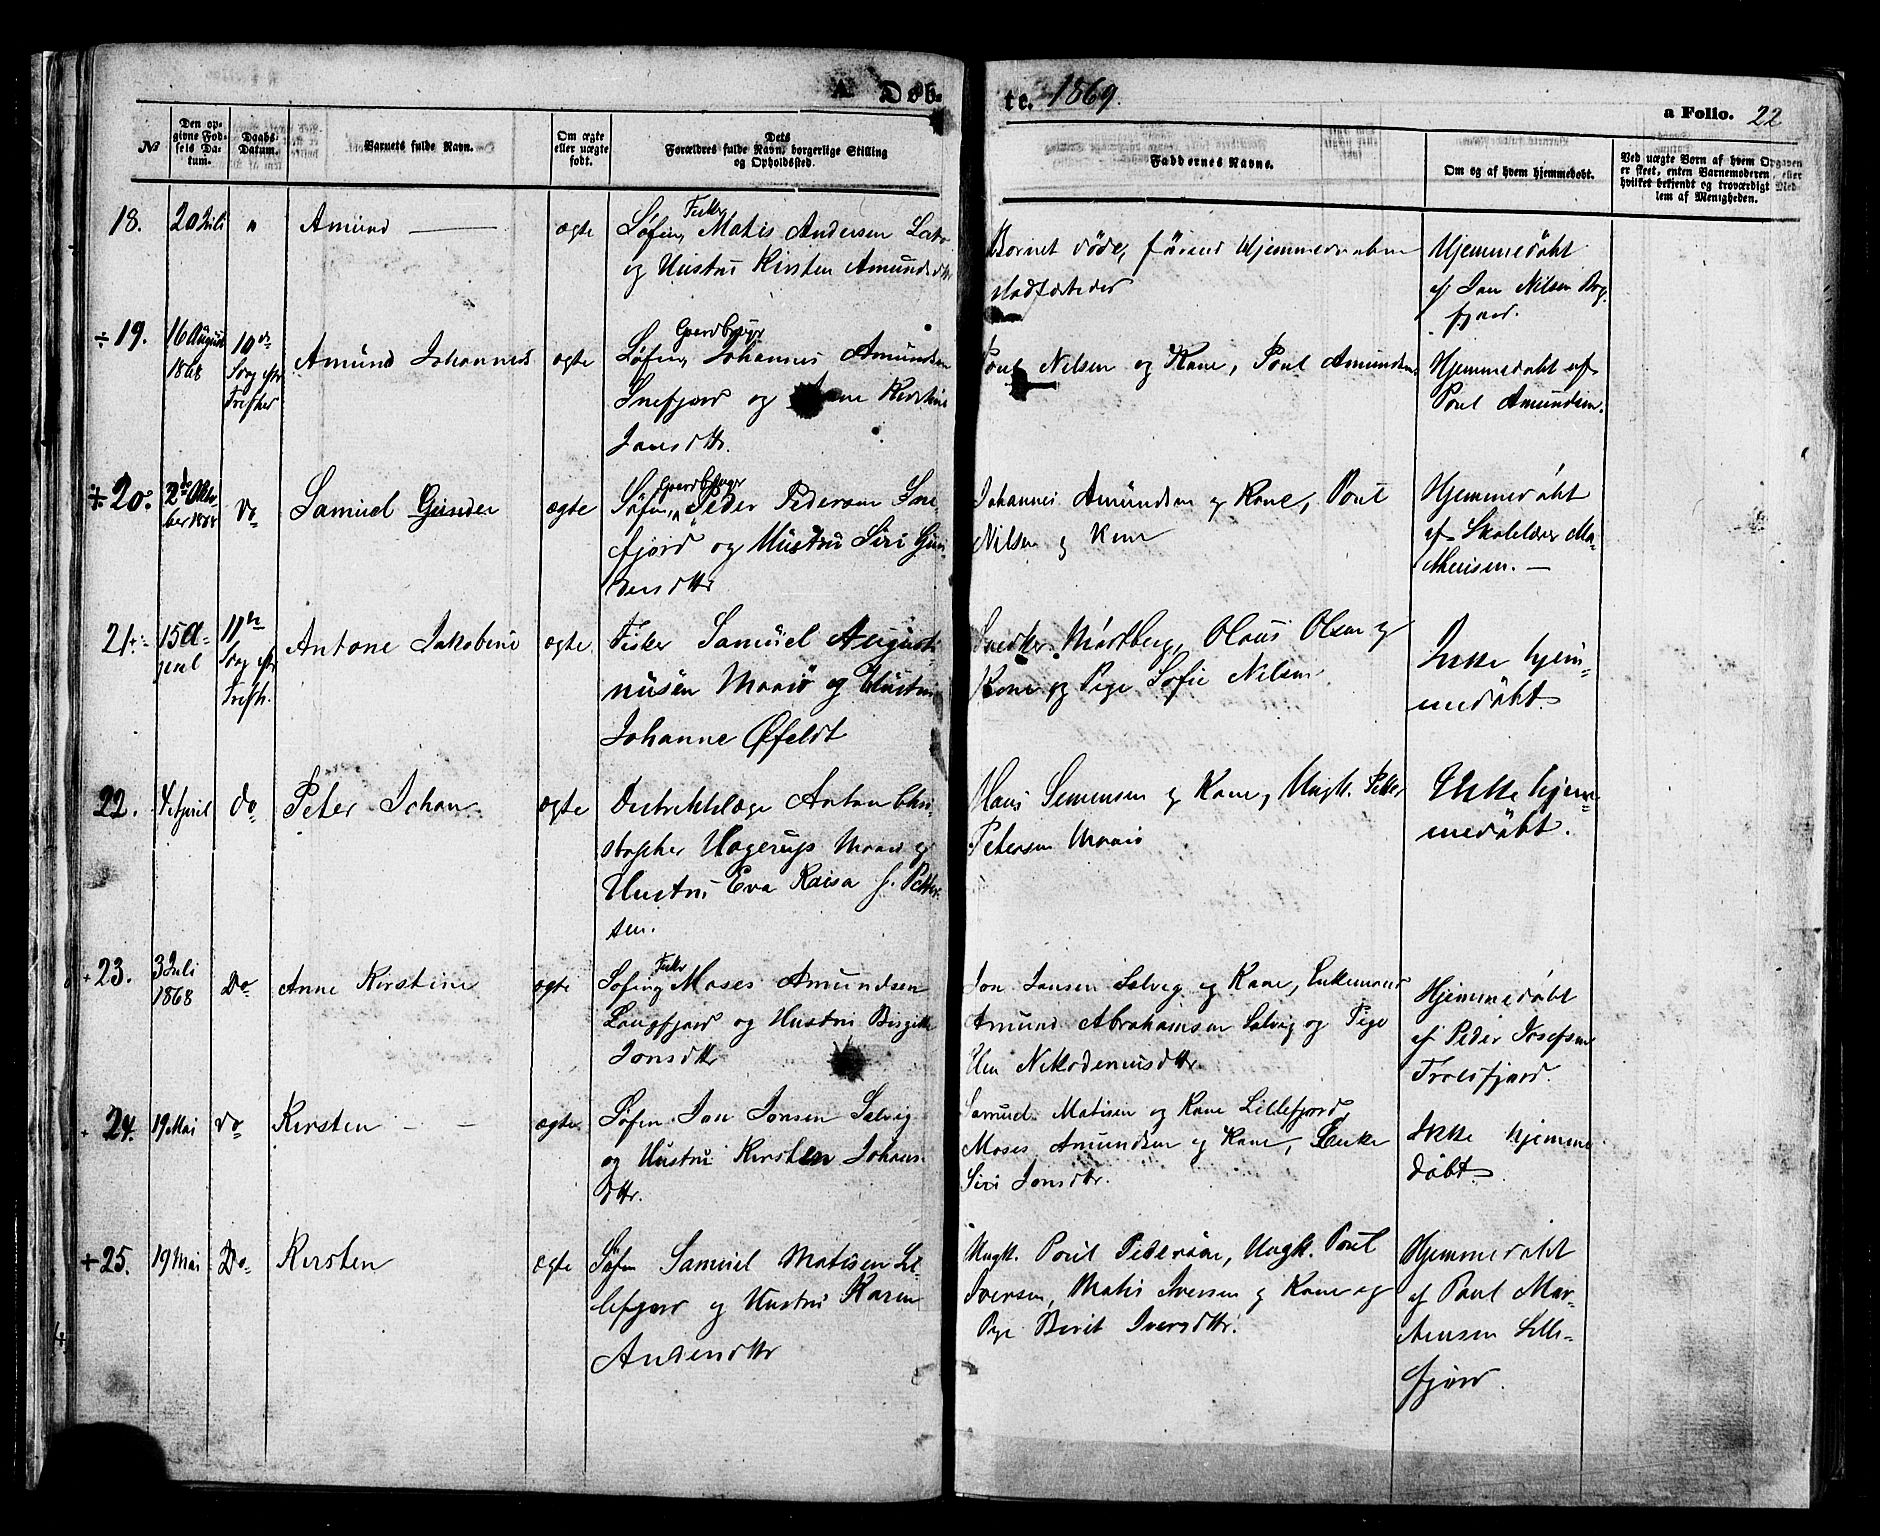 A. Døb-
te. 1869.
a Folio. 22
№
Den op-
givne Fød-
sels Da-
tum.
Daabs-
Datum.
Barnets fulde Navn.
Om ægte
eller uægte
født.
Dets
Forældres fulde Navn, borgerlige Stilling
og Opholdssted.
Faddernes Navne.
Om og af hvem hjemmedøbt.
Ved uægte Børn af hvem Opgaven
er skeet, enten Barnemoderen eller
hvilket bekjendt og troværdigt Med-
lem af Menigheden.
18. 20 Juli " Amund ægte
Fisker
Søfin, Matis Andersen
og Hustru Kirsten Amundsdtr
Barnet døde, førend Hjemmedaaben
stadfæstedes
Hjemmedøbt
af Jon Nilsen
fjord.
÷ 19. 16 August
1868
10de
Søng eftr
Trefher
Amund Johannes ægte
Gaardbryger
Søfin, Johannes Amundsen
Snefjord og Anne Kirstine
Jonsdttr.
Poul Nilsen og Kone, Poul Amundsen
Hjemmedøbt af
Poul Amundsen.
÷ 20. 2de Okto-
ber 1868
Do
Samuel Gunder ægte
Gaardbryger
Søfin, Peder Pedersen Sne-
fjord og Hustru Siri Gun-
dersdttr
Johannes Amundsen og Kone, Poul
Nilsen og Kone
Hjemmedøbt
af Skolelærer Ma-
thiesen. —
21. 15 A-
pril
11te
Søng eftr
Trefh.
Antone Jakobine ægte
Fisker Samuel August-
nusen Maasø og Hustru
Johanne Øfeldt
Snedker Mørtberg, Olaus Olsen og
Kone og Pige Sofie Nilsen
Ikke hjem-
medøbt.
22. 4 April Do Peter Johan ægte
Distriktslæge Anton Chri-
stopher Hagerup Maasø og
Hustru Eva Kaisa f. Petter-
sen.
Hans Simensen og Kone, Ungk. Petter
Petersen Maasø
Ikke hjem-
medøbt.
+ 23. 3 Juli
1868
Do
Anne Kirstine ægte
Fisker
Søfin, Moses Amundsen
Langfjord og Hustru Birgitte
Jonsdttr
Jon Jonsen Selvig og Kone, Enkemand
Amund Abrahamsen Selvig og Pige
Elen Nikodemusdttr
Hjemmedøbt
af Peder Josefsen
Troldfjord.
+ 24. 19 Mai Do Kirsten — — ægte
Søfin Jon Jonsen Selvig
og Hustru Kirsten Johans-
dttr.
Samuel Matisen og Kone Lillefjord,
Moses Amundsen og Kone, Enke
Siri Jonsdtr.
Ikke hjemme
døbt.
+ 25. 19 Mai Do Kirsten ægte
Søfin Samuel Matisen Lil-
lefjord og Hustru Karen
Andersdttr
Ungk. Poul Pedersen, Ungk. Poul
Iversen, Matis Iversen og Kone og
Pige Berit Iversdttr.
Hjemmedøbt
af Poul Mor-
tensen Lille-
fjord.